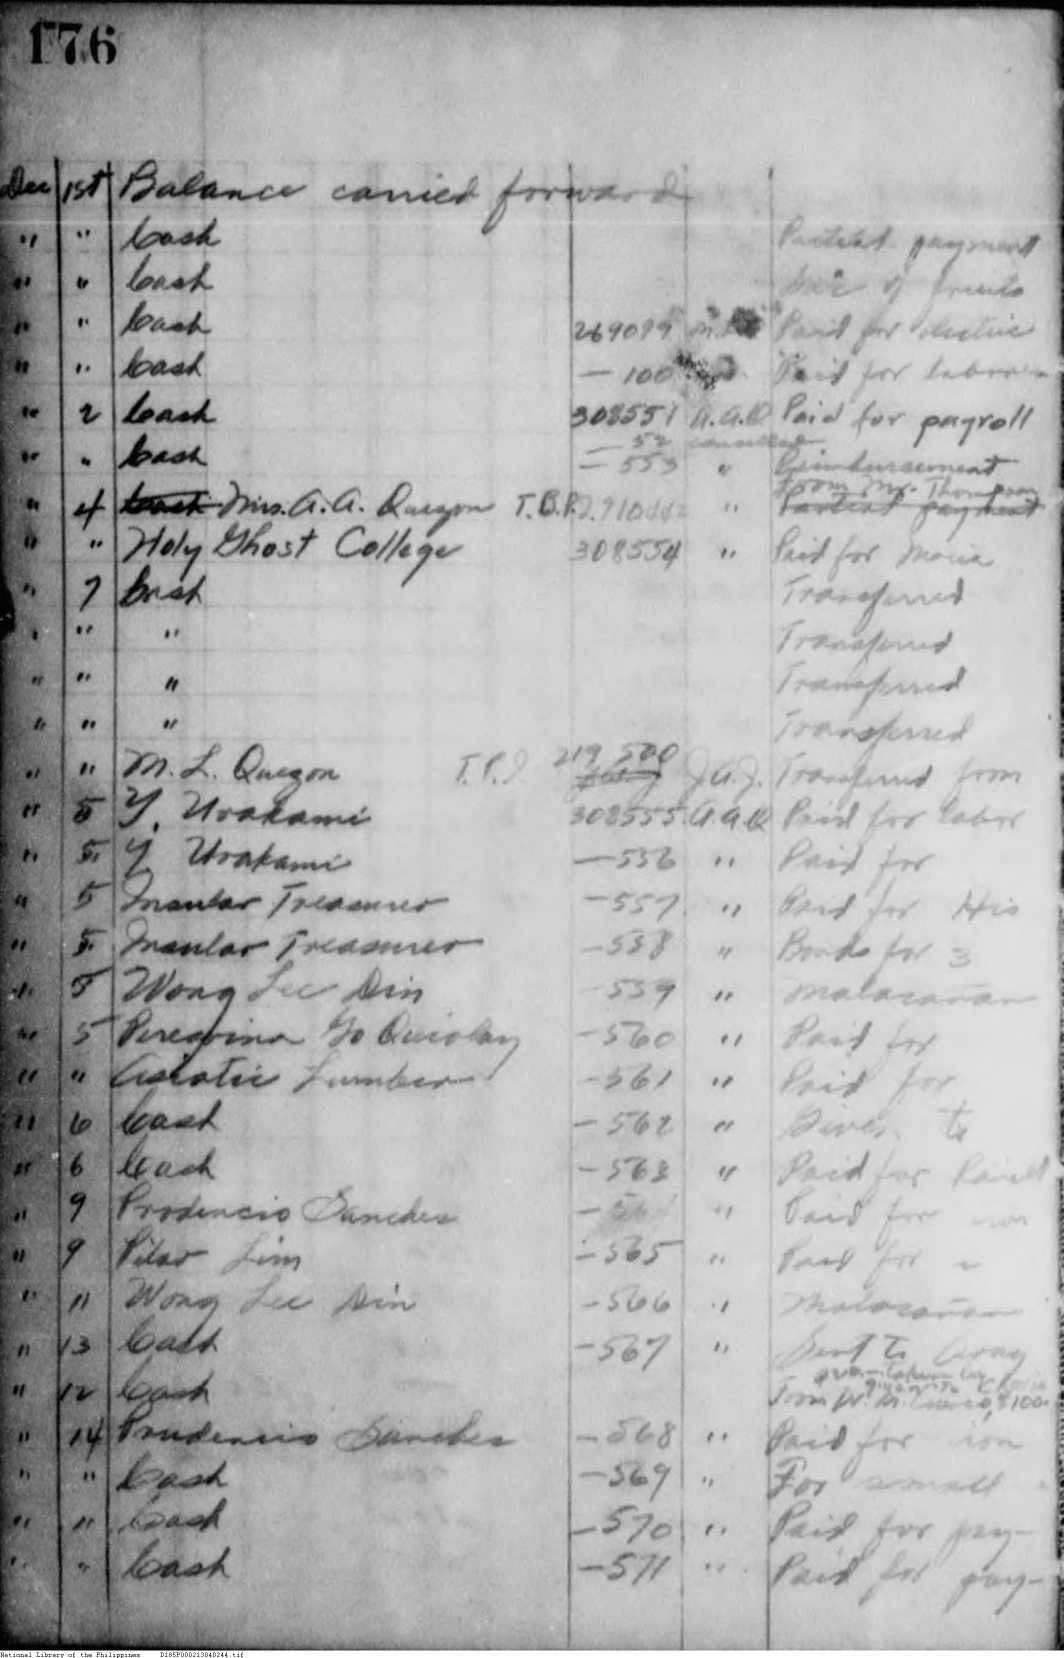 176
Dec 1st Balance carried forward
" " Cash payment
" " Cash of fruits
" " Cash 269099 Paid for electric
" " Cash — 100 Paid for labor
" 2 Cash 308551 A.A.Q Paid for payroll
— 52 cancelled
" " Cash — 553 " Reimbursement
from Mr. Thompson
" 4 Cash Mrs. A. A. Quezon T.B.P. " Partial payment
" " Holy Ghost College 308554 " Paid for Maria
" 7 Cash Transferred
" " " Transferred
" " " Transferred
" " " Transferred
219500
" " M. L. Quezon Transferred from
" 5 Y. Urakami 308555 A.A.Q Paid for labor
" 5 Y Urakami — 556 " Paid for
" 5 Insular Treasurer — 557 " Paid for His
" 5 Insular Treasurer — 558 " Bonds for 3
" 5 Wong Lee Din 559 " Malacañan
" 5 Peregrina Go Quiolay — 560 " Paid for
" " Asiatic Lumber — 561 " Paid for
" 6 Cash — 562 " Given to
" 6 Cash — 563 " Paid for
" 9 Prodencio Sanches — " Paid for
" 9 Pilar Lim — 565 " Paid for
" 11 Wong Lee Din — 566 " Malacañan
" 13 Cash — 567 " Sent to
" 12 Cash
from
" 14 Prudencio Sanches — 568 " Paid for
" " Cash — 569 " For small
" " Cash — 570 " Paid for pay-
" " Cash — 571 " Paid for pay-
National Library of the Philippines D185P000213040244.tif